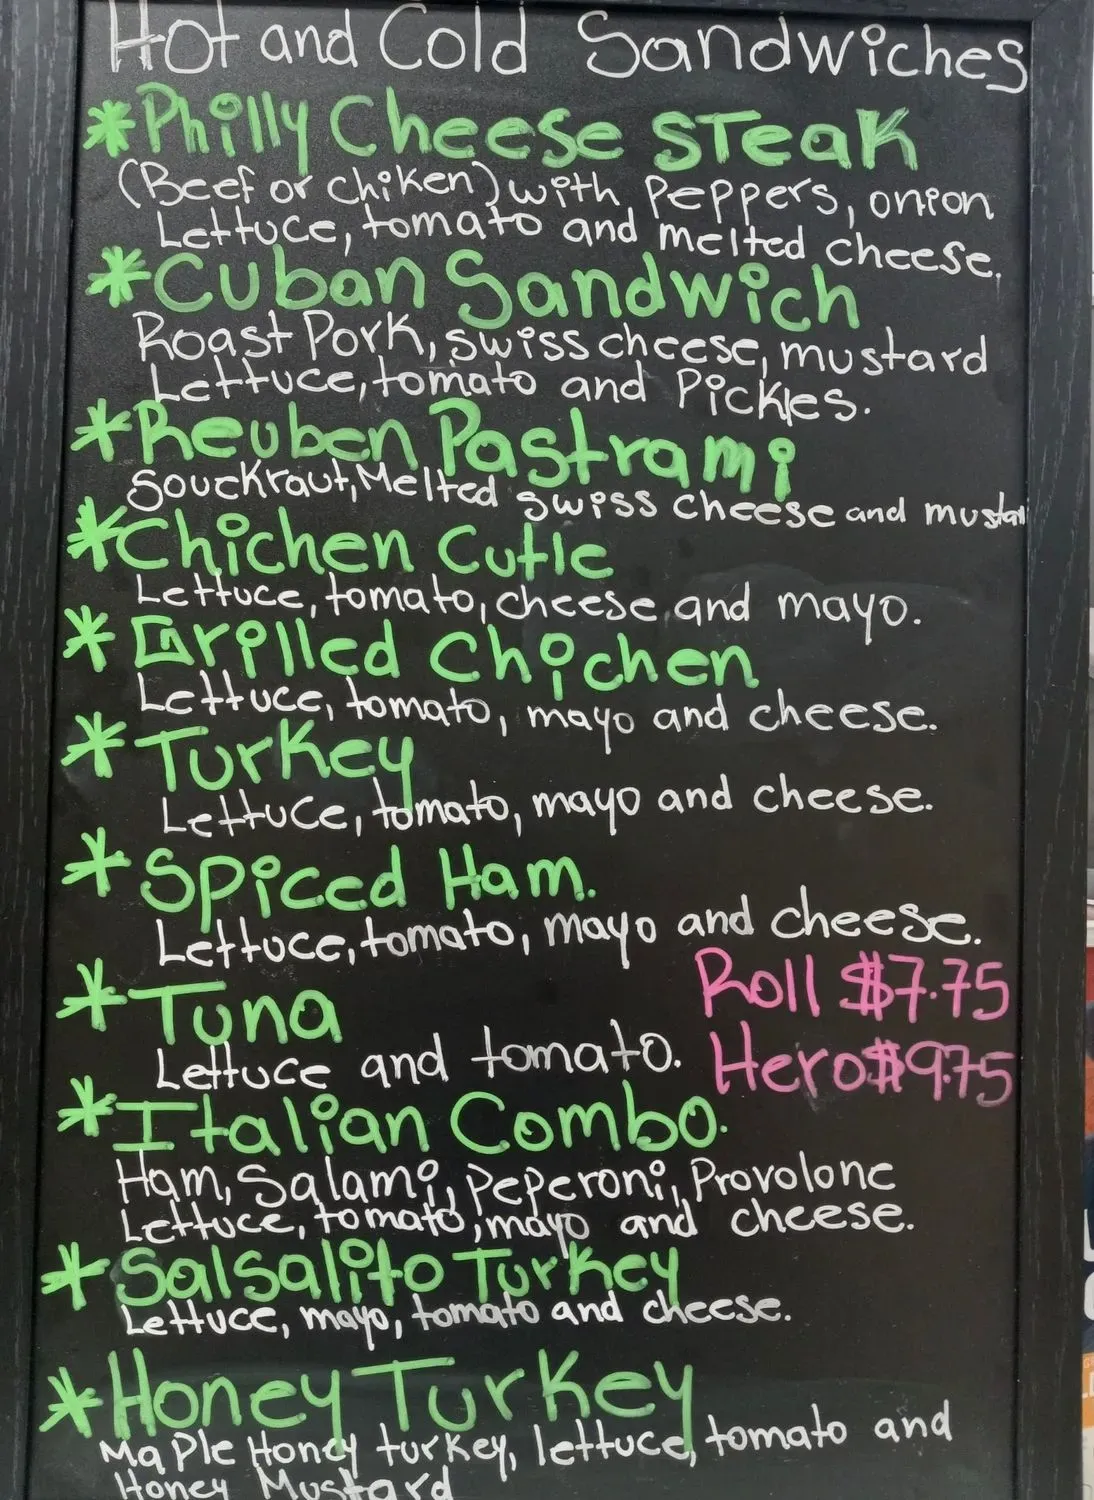 Hot and Cold Sandwiches
*Philly Cheese STeak
(Beef or chiken) with Peppers, onion
Lettuce, tomato and melted cheese.
*Cuban Sandwich
Roast Pork, swiss cheese, mustard
Lettuce, tomato and Pickles.
*Reuben Pastrami
Souckraut, Melted swiss cheese and mustar
*Chichen Cutle
Lettuce, tomato, cheese and mayo.
*Grilled Chichen
Lettuce, tomato, mayo and cheese.
*Turkey
Lettuce, tomato, mayo and cheese.
*Spiced Ham.
Lettuce, tomato, mayo and cheese.
Roll $7.75
*Tuna
Lettuce and tomato.
Hero $9.75
*Italian Combo.
Ham, Salami, Peperoni, Provolone
Lettuce, tomato, mayo and cheese.
*Salsalito Turkey
Lettuce, mayo, tomato and cheese.
*Honey Turkey
MaPle Honey turkey, lettuce, tomato and
Honey Mustard